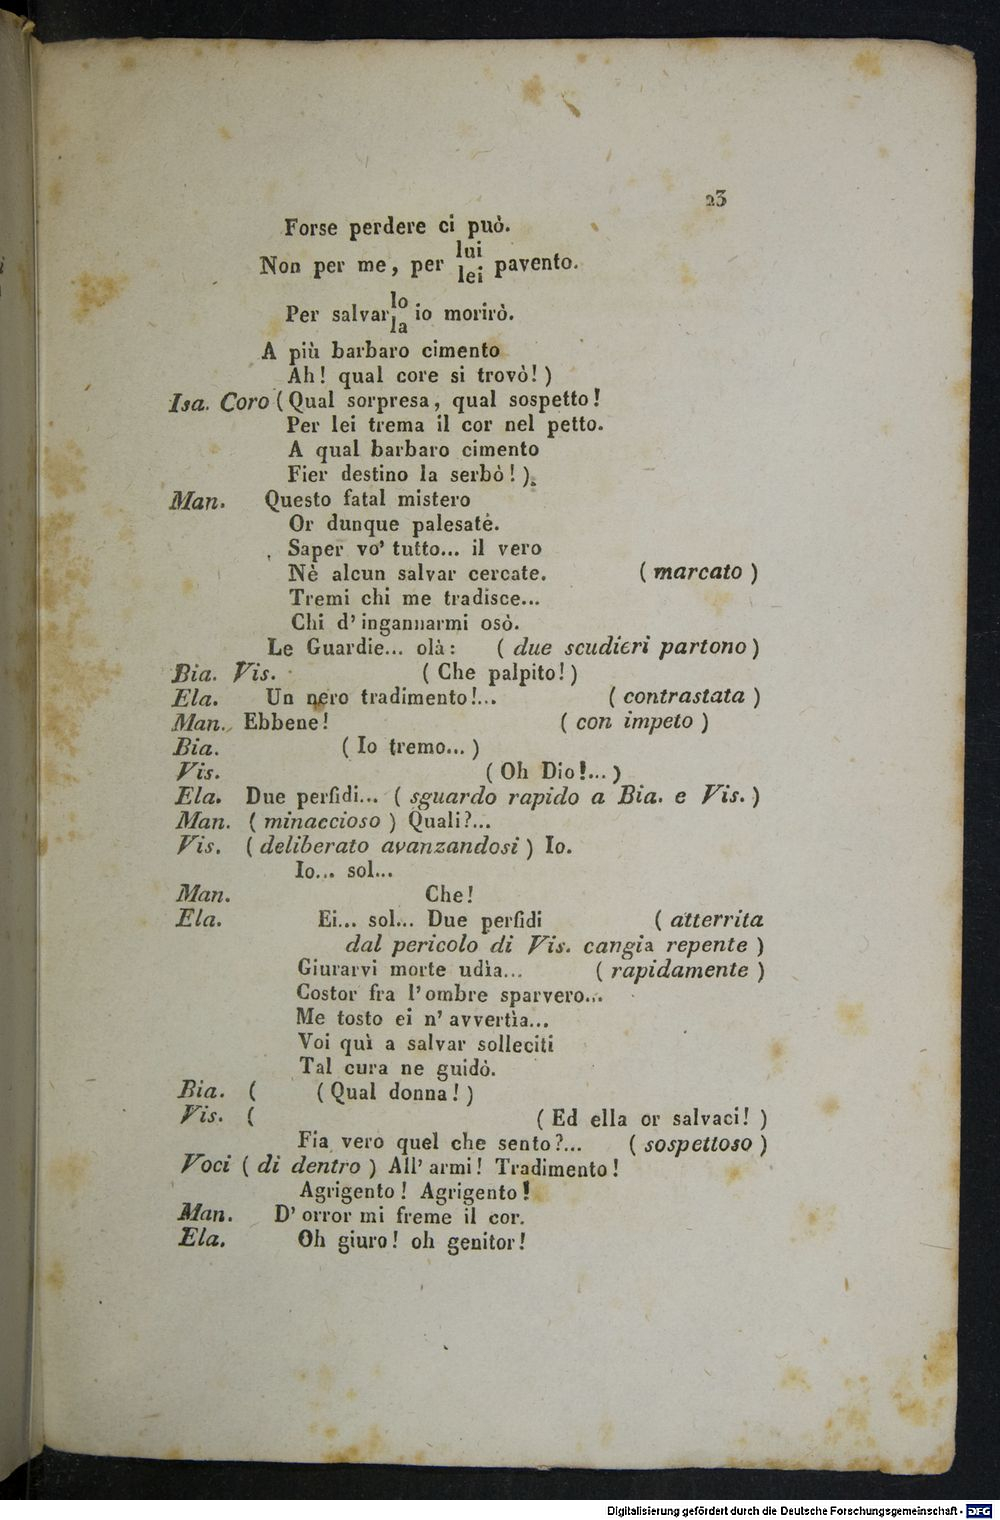 23
Forse perdere ci può.
lui
Non per me, per lei pavento.
lo
Per salvar la io morirò.
A più barbaro cimento
Ah! qual core si trovò!)
Isa. Coro (Qual sorpresa, qual sospetto!
Per lei trema il cor nel petto.
A qual barbaro cimento
Fier destino la serbò!).
Man. Questo fatal mistero
Or dunque palesate.
Saper vo' tutto... il vero
Nè alcun salvar cercate. (marcato)
Tremi chi me tradisce...
Chi d'ingannarmi osò.
Le Guardie... olà: (due scudieri partono)
Bia. Vis. (Che palpito!)
Ela. Un nero tradimento!... (contrastata)
Man. Ebbene! (con impeto)
Bia. (Io tremo...)
Vis. (Oh Dio!...)
Ela. Due perfidi... (sguardo rapido a Bia. e Vis.)
Man. (minaccioso) Quali?...
Vis. (deliberato avanzandosi) Io.
Io... sol...
Man. Che!
Ela. Ei... sol... Due perfidi (atterrita
dal pericolo di Vis. cangia repente)
Giurarvi morte udìa... (rapidamente)
Costor fra l'ombre sparvero...
Me tosto ei n'avvertìa...
Voi quì a salvar solleciti
Tal cura ne guidò.
Bia. ( (Qual donna!)
Vis. ( (Ed ella or salvaci!)
Fia vero quel che sento?... (sospettoso)
Voci (di dentro) All'armi! Tradimento!
Agrigento! Agrigento!
Man. D'orror mi freme il cor.
Ela. Oh giuro! oh genitor!
Digitalisierung gefördert durch die Deutsche Forschungsgemeinschaft - DFG